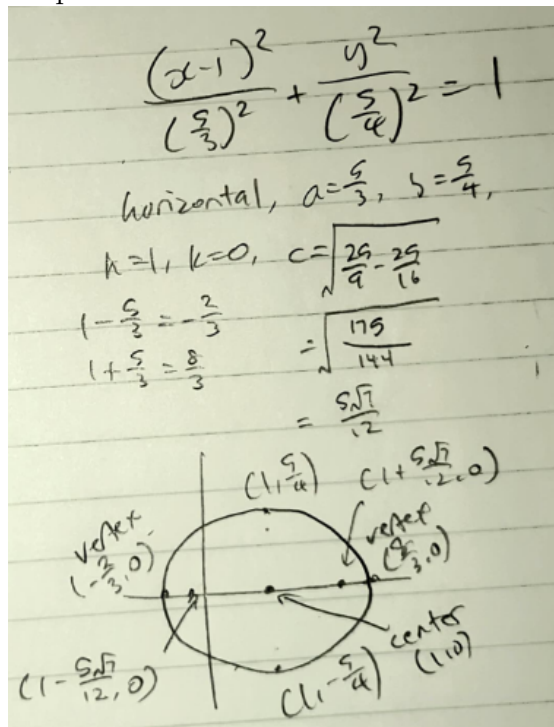 (x-1)²/(5/3)² + y²/(5/4)² = 1
horizontal, a=5/3, b=5/4,
h=1, k=0, c=√(25/9 - 25/16)
1-5/3=-2/3
=√(175/144)
1+5/3=8/3
=5√7/12
(1,5/4) (1+5√7/12,0)
vertex
(-2/3,0)
vertex
(8/3,0)
center
(1,0)
(1-5√7/12,0)
(1,-5/4)